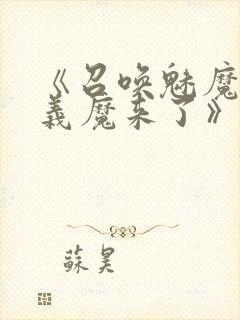 《召唤魅魔
义魔来了》
苏昊